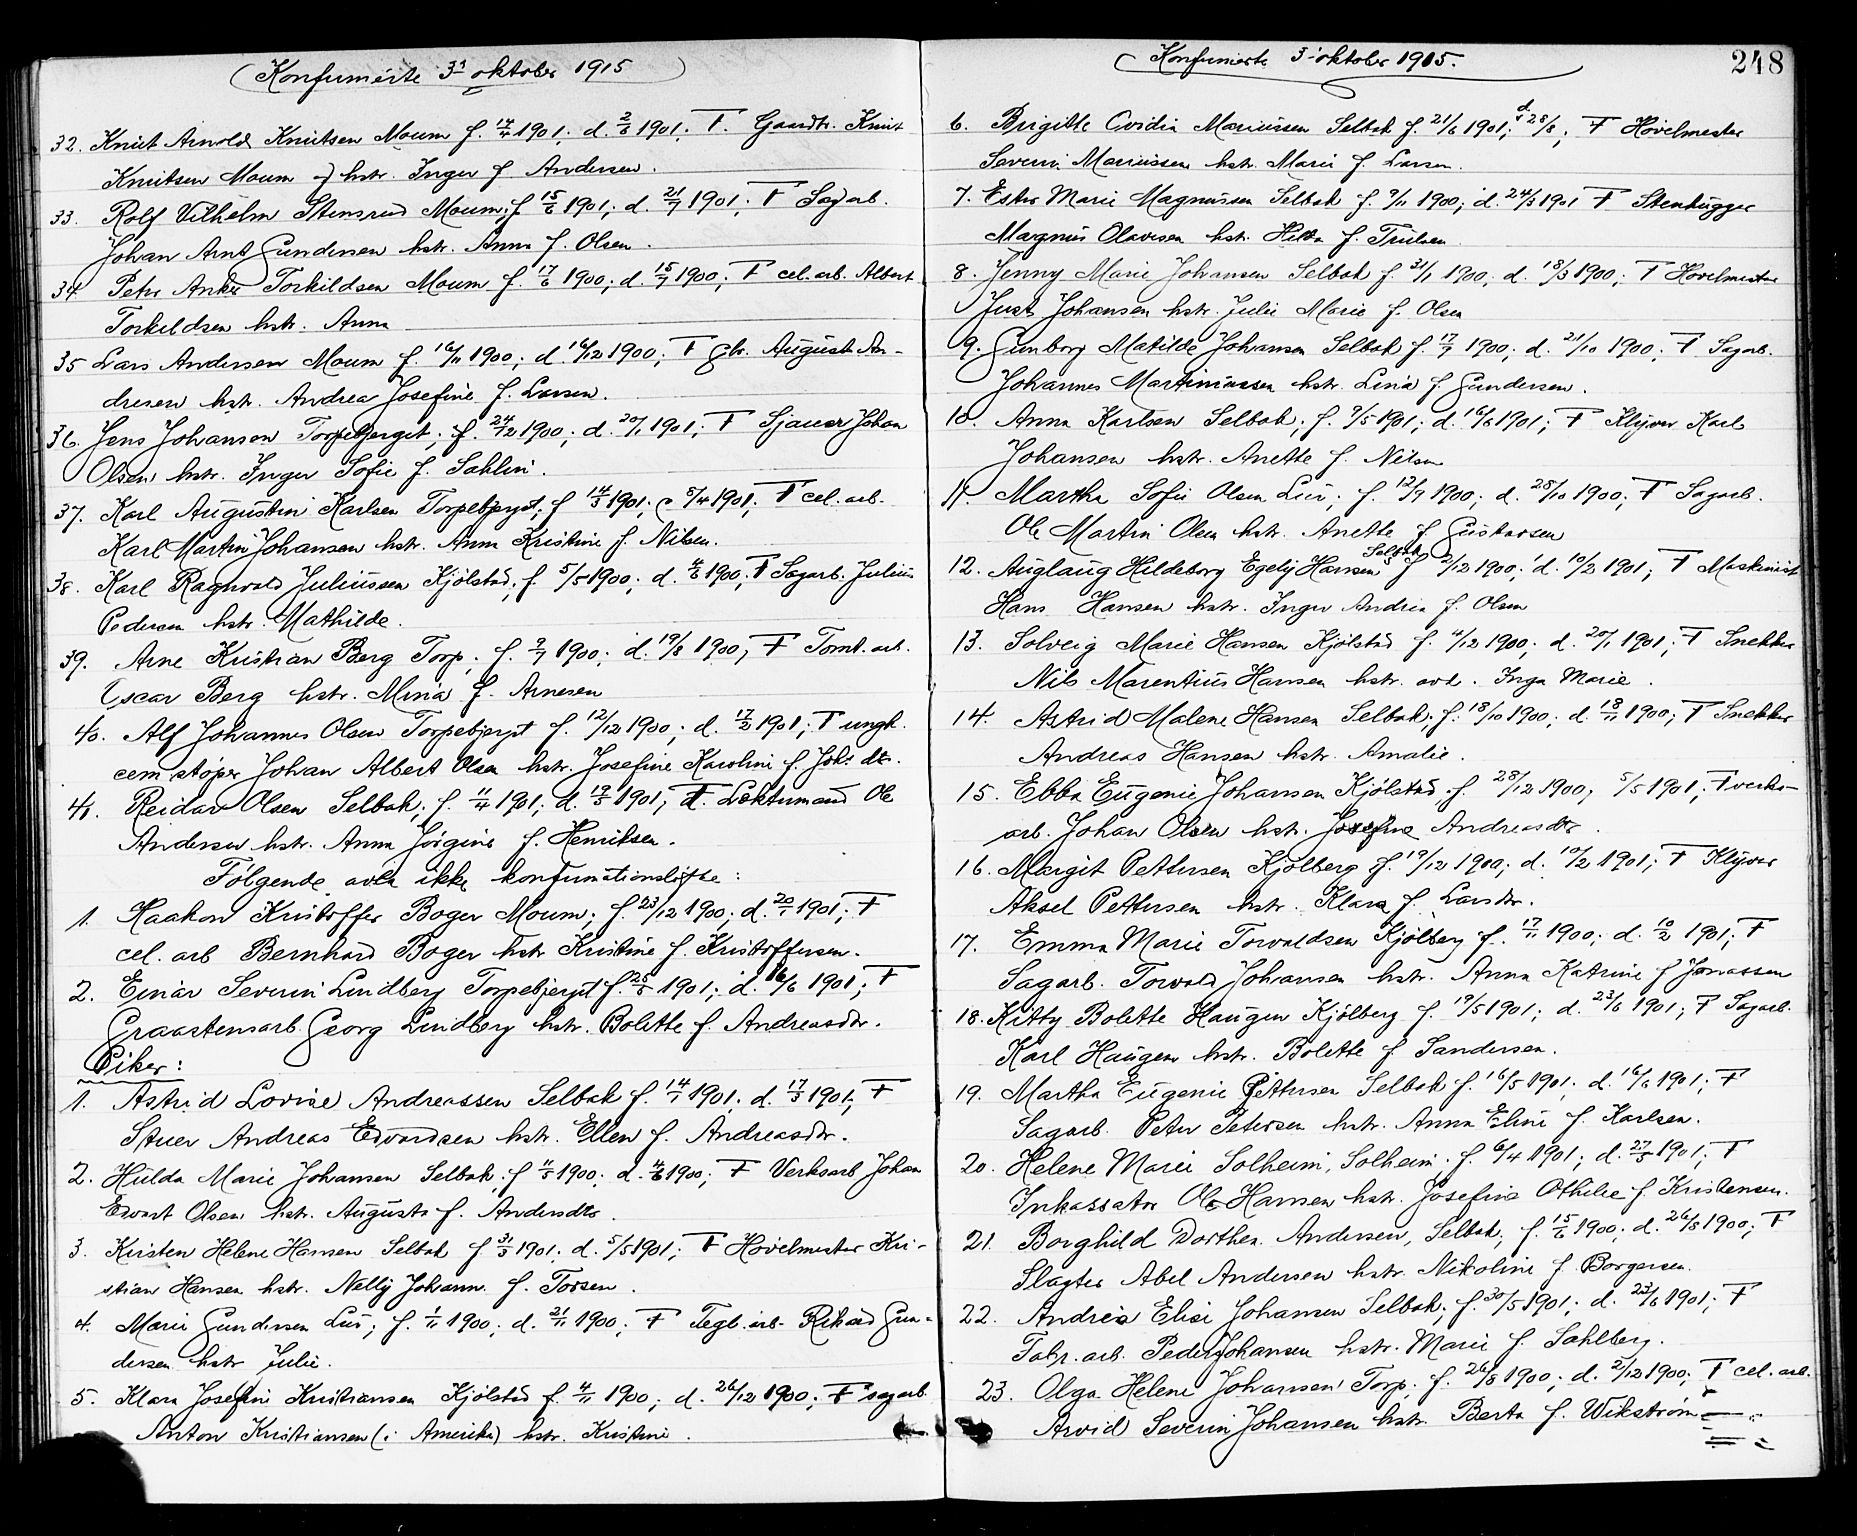 Konfirmerte 3' oktober 1915
32. Knut Arnold Knutsen Moum f. 14/4 1901; d. 2/6 1901; F. Gaardbr. Knut
Knutsen Moum og hstr. Inger f. Andersen.
33. Rolf Vilhelm Stensrud Moum; f. 15/6 1901; d. 21/7 1901; F Sagarb.
Johan Arnt Gundersen hstr. Anna f. Olsen.
34. Peter Anker Torkildsen Moum f. 17/6 1900; d. 15/7 1900; F cel. arb. Albert
Torkildsen hstr. Anna
35 Lars Andersen Moum f. 16/11 1900; d. 16/12 1900; F Gbr. August An-
dresen hstr. Andrea Josefine f. Larsen.
36. Jens Johanson Torpebjerget; f. 24/12 1900; d. 20/1 1901; F Sjauer Johan
Olsen hstr. Inger Sofie f. Sahlin.
37. Karl Augustin Karlsen Torpebjerget; f 14/3 1901; d 5/4 1901; F cel. arb.
Karl Martin Johansen hstr. Anna Kristine f. Nilsen.
38. Karl Ragnvald Juliussen Kjølstad; f. 5/5 1900; d. 4/6 1900; F Sagarb. Julius
Pedersen hstr. Mathilde.
39. Arne Kristian Berg Torp; f. 9/7 1900; d. 19/8 1900; F Tomt. arb.
Oscar Berg hstr. Mina f. Arnesen
40. Alf Johannes Olsen Torpebjerget f. 12/12 1900; d. 17/2 1901; F ungk.
cem. støper Johan Albert Olsen hstr. Josefine Karoline f. Joh. dtr.
41. Reidar Olsen Selbak; f. 11/4 1901; d. 19/5 1901; F. Løktemand Ole
Andersen hstr. Anna Jørgine f. Henriksen.
Følgende avla ikke konfirmationsløfte:
1. Haakon Kristoffer Boger Moum; f. 23/12 1900; d. 20/1 1901; F
cel. arb Bernhard Boger hstr Kristine f. Kristoffersen.
2. Einar Severin Lindberg Torpebjerget f. 25/5 1901; d. 16/6 1901; F
Graastensarb. Georg Lindberg hstr. Bolette f. Andreasdtr.
Piker:
1. Astrid Lovise Andreassen Selbak f. 14/1 1901; d. 17/3 1901; F
Stuer Andreas Edvardsen hstr. Ellen f. Andreasdtr.
2. Hulda Marie Johansen Selbak; f. 11/5 1900; d. 4/6 1900; F Verksarb Johan
Edvart Olsen hstr. Augusta f. Andersdtr.
3. Kristen Helene Hansen Selbak f 31/3 1901; d. 5/5 1901; F Høvelmester Kri-
stian Hansen hstr. Nelly Johann. f. Torsen.
4. Marie Gundersen Lui; f. 1/11 1900; d. 21/11 1900; F Tegl. arb. Rikard Gun-
dersen hstr Julie.
5. Klara Josefine Kristiansen Kjølstad f. 4/11 1900; d. 26/12 1900; F sagarb
Anton Kristiansen (i Amerika) hstr. Kristine.
Konfirmerte 3' oktober 1915.
248
6. Brigitte Ovidia Mariussen Selbak f. 21/6 1901; d. 28/8; F Høvelmester
Severin Mariussen hstr. Marie f. Larsen.
7. Ester Marie Magnussen Selbak f. 9/11 1900; d. 24/3 1901 F Stenhugger
Magnus Olavesen hstr. Hilda f. Trulsen.
8. Jenny Marie Johansen Selbak f. 31/1 1900; d. 18/3 1900; F Høvelmester
Just Johansen hstr. Julie Marie f. Olsen
9. Gunborg Matilde Johansen Selbak f. 17/9 1900; d. 21/10 1900; F Sagarb.
Johannes Martiniussen hstr. Lina f. Gundersen.
10. Anna Karlsen Selbak; f. 9/5 1901; d. 16/6 1901; F Klyver Karl
Johansen hstr. Anette f. Nilsen
11 Martha Sofie Olsen Lui; f. 12/9 1900; d. 28/10 1900; F Sagarb.
Ole Martin Olsen hstr. Anette f. Gustavsen
12. Auglaug Hildeborg Egely Hansen Selbak f 2/12 1900; d. 10/2 1901; F Maskinist
Hans Hansen hstr. Inger Andrea f. Olsen
13. Solveig Marie Hansen Kjølstad f. 4/12 1900; d. 20/1 1901; F Snekker
Nils Marentius Hansen hstr. avd. Inga Marie.
14. Astrid Malene Hansen Selbak; f. 18/10 1900; d. 18/11 1900; F Snekker
Andreas Hansen hstr. Amalie.
15. Ebba Eugenie Johansen Kjølstad, f. 28/12 1900; 5/5 1901; F verks-
arb. Johan Olsen hstr. Josefine Andreasdtr.
16. Margit Pettersen Kjølberg f. 19/12 1900; d. 10/2 1901; F Klyver
Aksel Pettersen hstr. Klara f. Larsdtr.
17. Emma Marie Torvaldsen Kjølberg f. 17/11 1900; d. 10/2 1901; F
Sagarb. Torvald Johansen hstr. Anna Katrine f Jonassen
18. Kitty Bolette Haugen Kjølberg f. 19/5 1901; d. 23/6 1901; F Sagarb.
Karl Haugen hstr. Bolette f Sandersen.
19. Martha Eugenie Pettersen Selbak f. 16/5 1901; d. 16/6 1901; F
Sagarb. Peter Petersen hstr. Anna Eline f. Karlsen.
20. Helene Marie Solheim, Solheim; f. 6/4 1901; d. 27/5 1901; F
Inkassator Ole Hansen hstr. Josefine Othilie f. Kristensen.
21. Borghild Dorthea Andersen, Selbak; f. 15/6 1900; d. 26/8 1900; F
Slagter Abel Andersen hstr. Nikoline f. Borgersen.
22. Andrea Elise Johansen Selbak; f. 30/5 1901; d. 23/6 1901; F
Fabr. arb. Peder Johansen hstr. Marie f. Sahlberg.
23. Olga Helene Johansen Torp; f. 26/8 1900; d. 2/12 1900; F cel. arb.
Arvid Severin Johansen hstr. Berta f. Wikstrøm